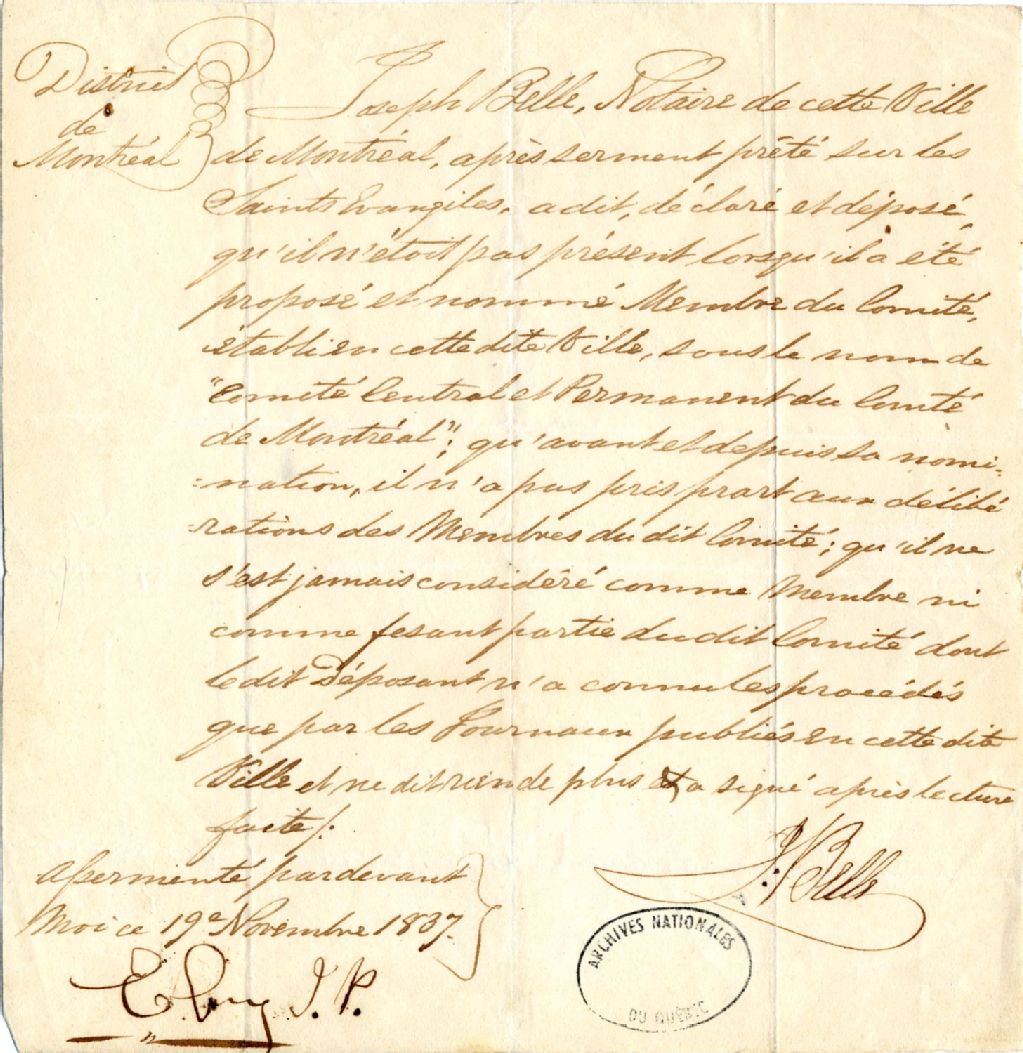 District
de
Montréal
Joseph Belle, Notaire de cette Ville
de Montréal, après serment prêté sur les
Saints Evangiles, a dit, déclaré et déposé,
qu'il n'étoit pas présent lorsqu'il a été
proposé et nommé Membre du Comité,
établi en cette dite Ville, sous le nom de
"Comité Central et Permanent du Comté
de Montréal"; qu'avant et depuis sa nomi-
-nation, il n'a pas pris part aux délibé
-rations des Membres du dit Comité; qu'il ne
s'est jamais considéré comme Membre ni
comme fesant partie du dit Comité dont
le dit Déposant n'a connu les procédés
que par les Journaux publiés en cette dite
Ville et ne dit rien de plus & a signé après lecture
faite/.
Assermenté pardevant
Moi ce 19e Novembre 1837.
J: Belle
J. P.
ARCHIVES NATIONALES
DU QUÉBEC